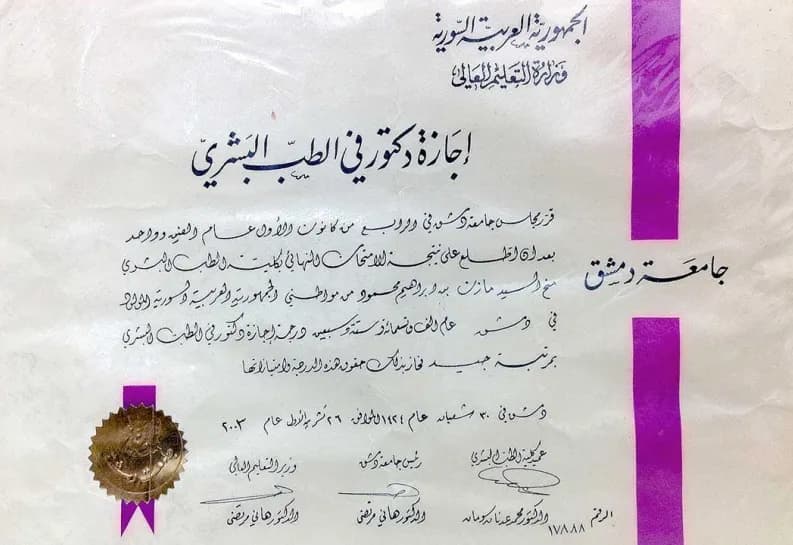 الجمهورية العربية السورية
وزارة التعليم العالي
إجازة دكتور في الطب البشري
جامعة دمشق
قرر مجلس جامعة دمشق في الرابع من كانون الأول عام الفين وواحد
بعد ان اطلع على نتيجة الامتحان النهائي لكلية الطب البشري
منح السيد مازن بن ابراهيم محمود من مواطني الجمهورية العربية السورية المولود
في دمشق عام الف وتسعمائة وستة وسبعين درجة إجازة دكتور في الطب البشري
بمرتبة جيد فحاز بذلك حقوق هذه الدرجة وامتيازاتها
دمشق في ٣٠ شعبان عام ١٤٢٤ الموافق ٢٦ تشرين الأول عام ٢٠٠٣
عميد كلية الطب البشري رئيس جامعة دمشق وزير التعليم العالي
الدكتور محمد عدنان سومان الدكتور هاني مرتضى الدكتور هاني مرتضى
الرقم ١٧٨٨٨